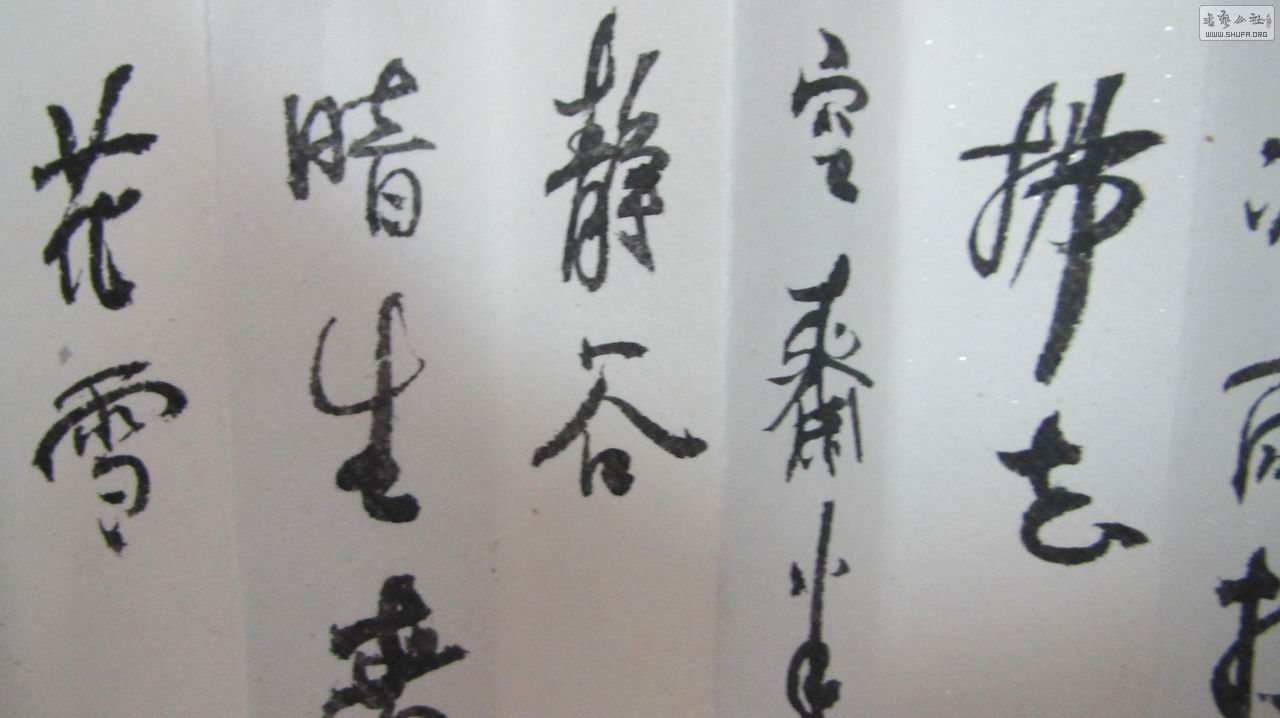 拂去
空齋半
静谷
暗生
花雪
书艺公社
WWW.SHUFA.ORG